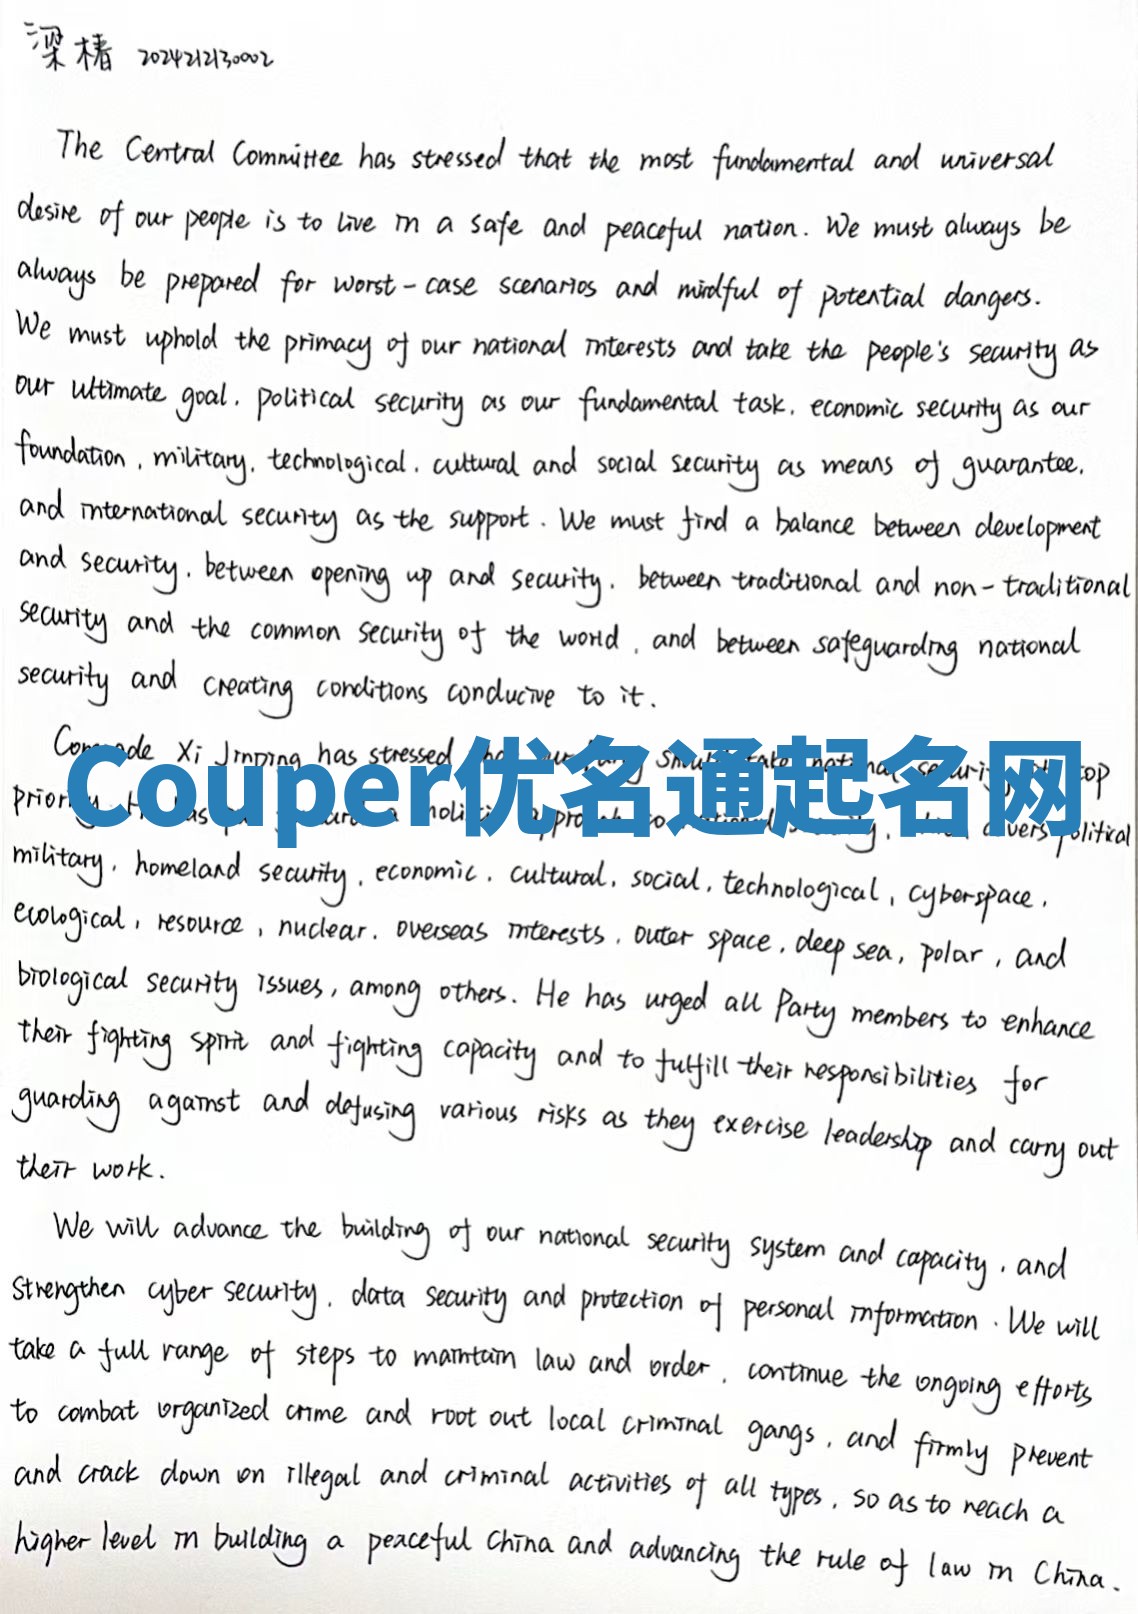 梁椿 2024212130002
The Central Committee has stressed that the most fundamental and universal
desire of our people is to live in a safe and peaceful nation. We must always be
always be prepared for worst-case scenarios and mindful of potential dangers.
We must uphold the primacy of our national interests and take the people's security as
our ultimate goal, political security as our fundamental task, economic security as our
foundation, military, technological, cultural and social security as means of guarantee,
and international security as the support. We must find a balance between development
and security, between opening up and security, between traditional and non-traditional
security and the common security of the world, and between safeguarding national
security and creating conditions conducive to it.
Comrade Xi Jinping has stressed
Couper优名通起名网
military, homeland security, economic, cultural, social, technological, cyberspace,
ecological, resource, nuclear, overseas interests, outer space, deep sea, polar, and
biological security issues, among others. He has urged all Party members to enhance
their fighting spirit and fighting capacity and to fulfill their responsibilities for
guarding against and defusing various risks as they exercise leadership and carry out
their work.
We will advance the building of our national security system and capacity, and
strengthen cyber security, data security and protection of personal information. We will
take a full range of steps to maintain law and order, continue the ongoing efforts
to combat organized crime and root out local criminal gangs, and firmly prevent
and crack down on illegal and criminal activities of all types, so as to reach a
higher level in building a peaceful China and advancing the rule of law in China.